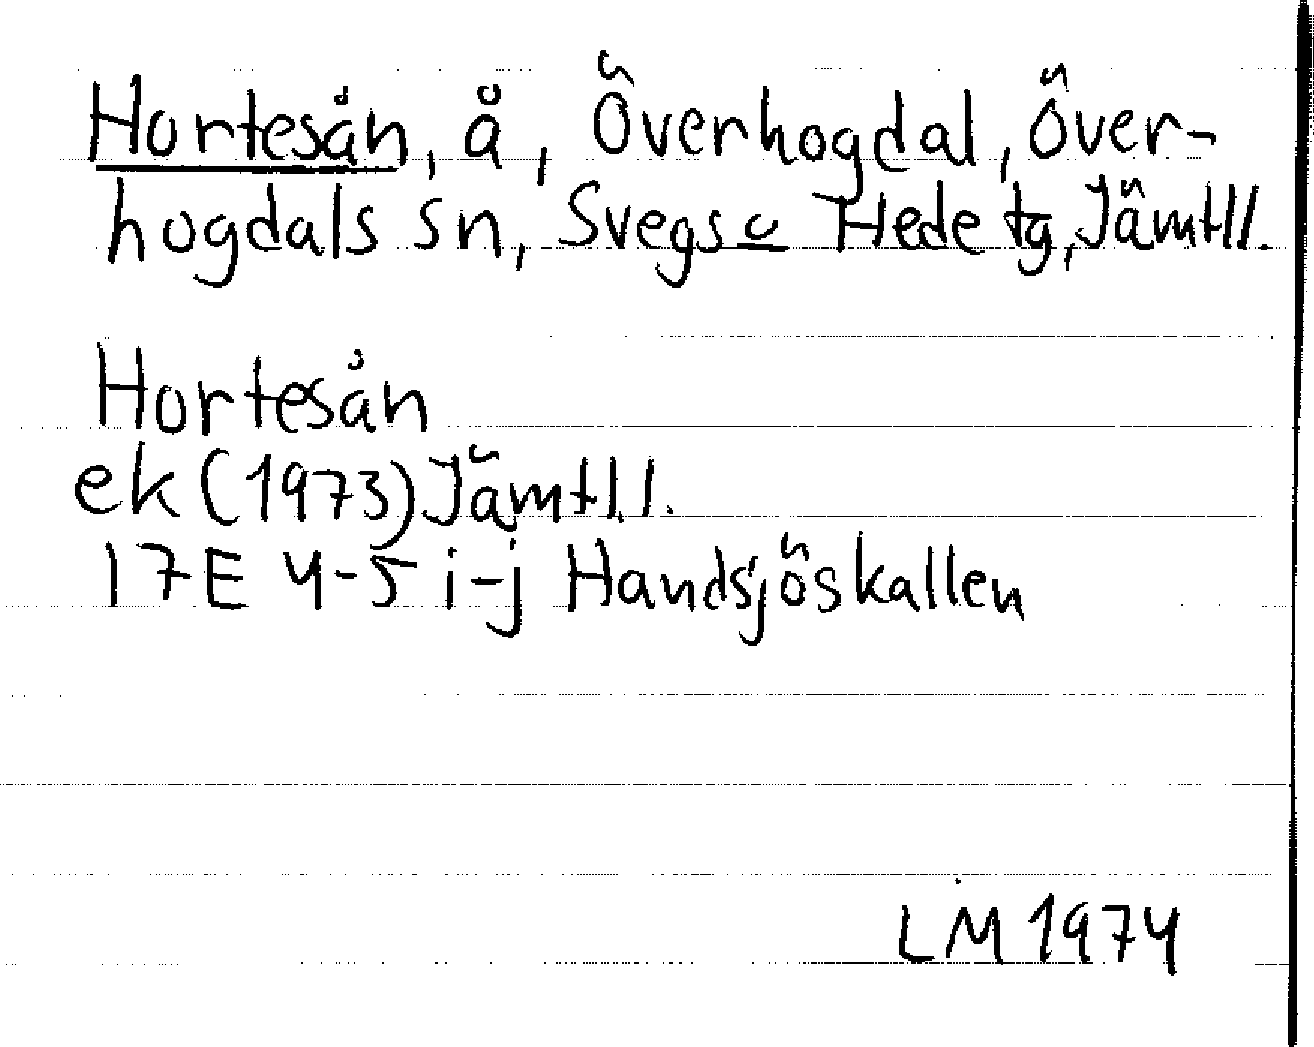 Hortesån, å, Överhogdal, Över-
hogdals sn, Svegs o Hede tg, Jämtl l.
Hortesån
ek (1973) Jämtl. l.
17E 4-5 i-j Handsjöskallen
LM 1974